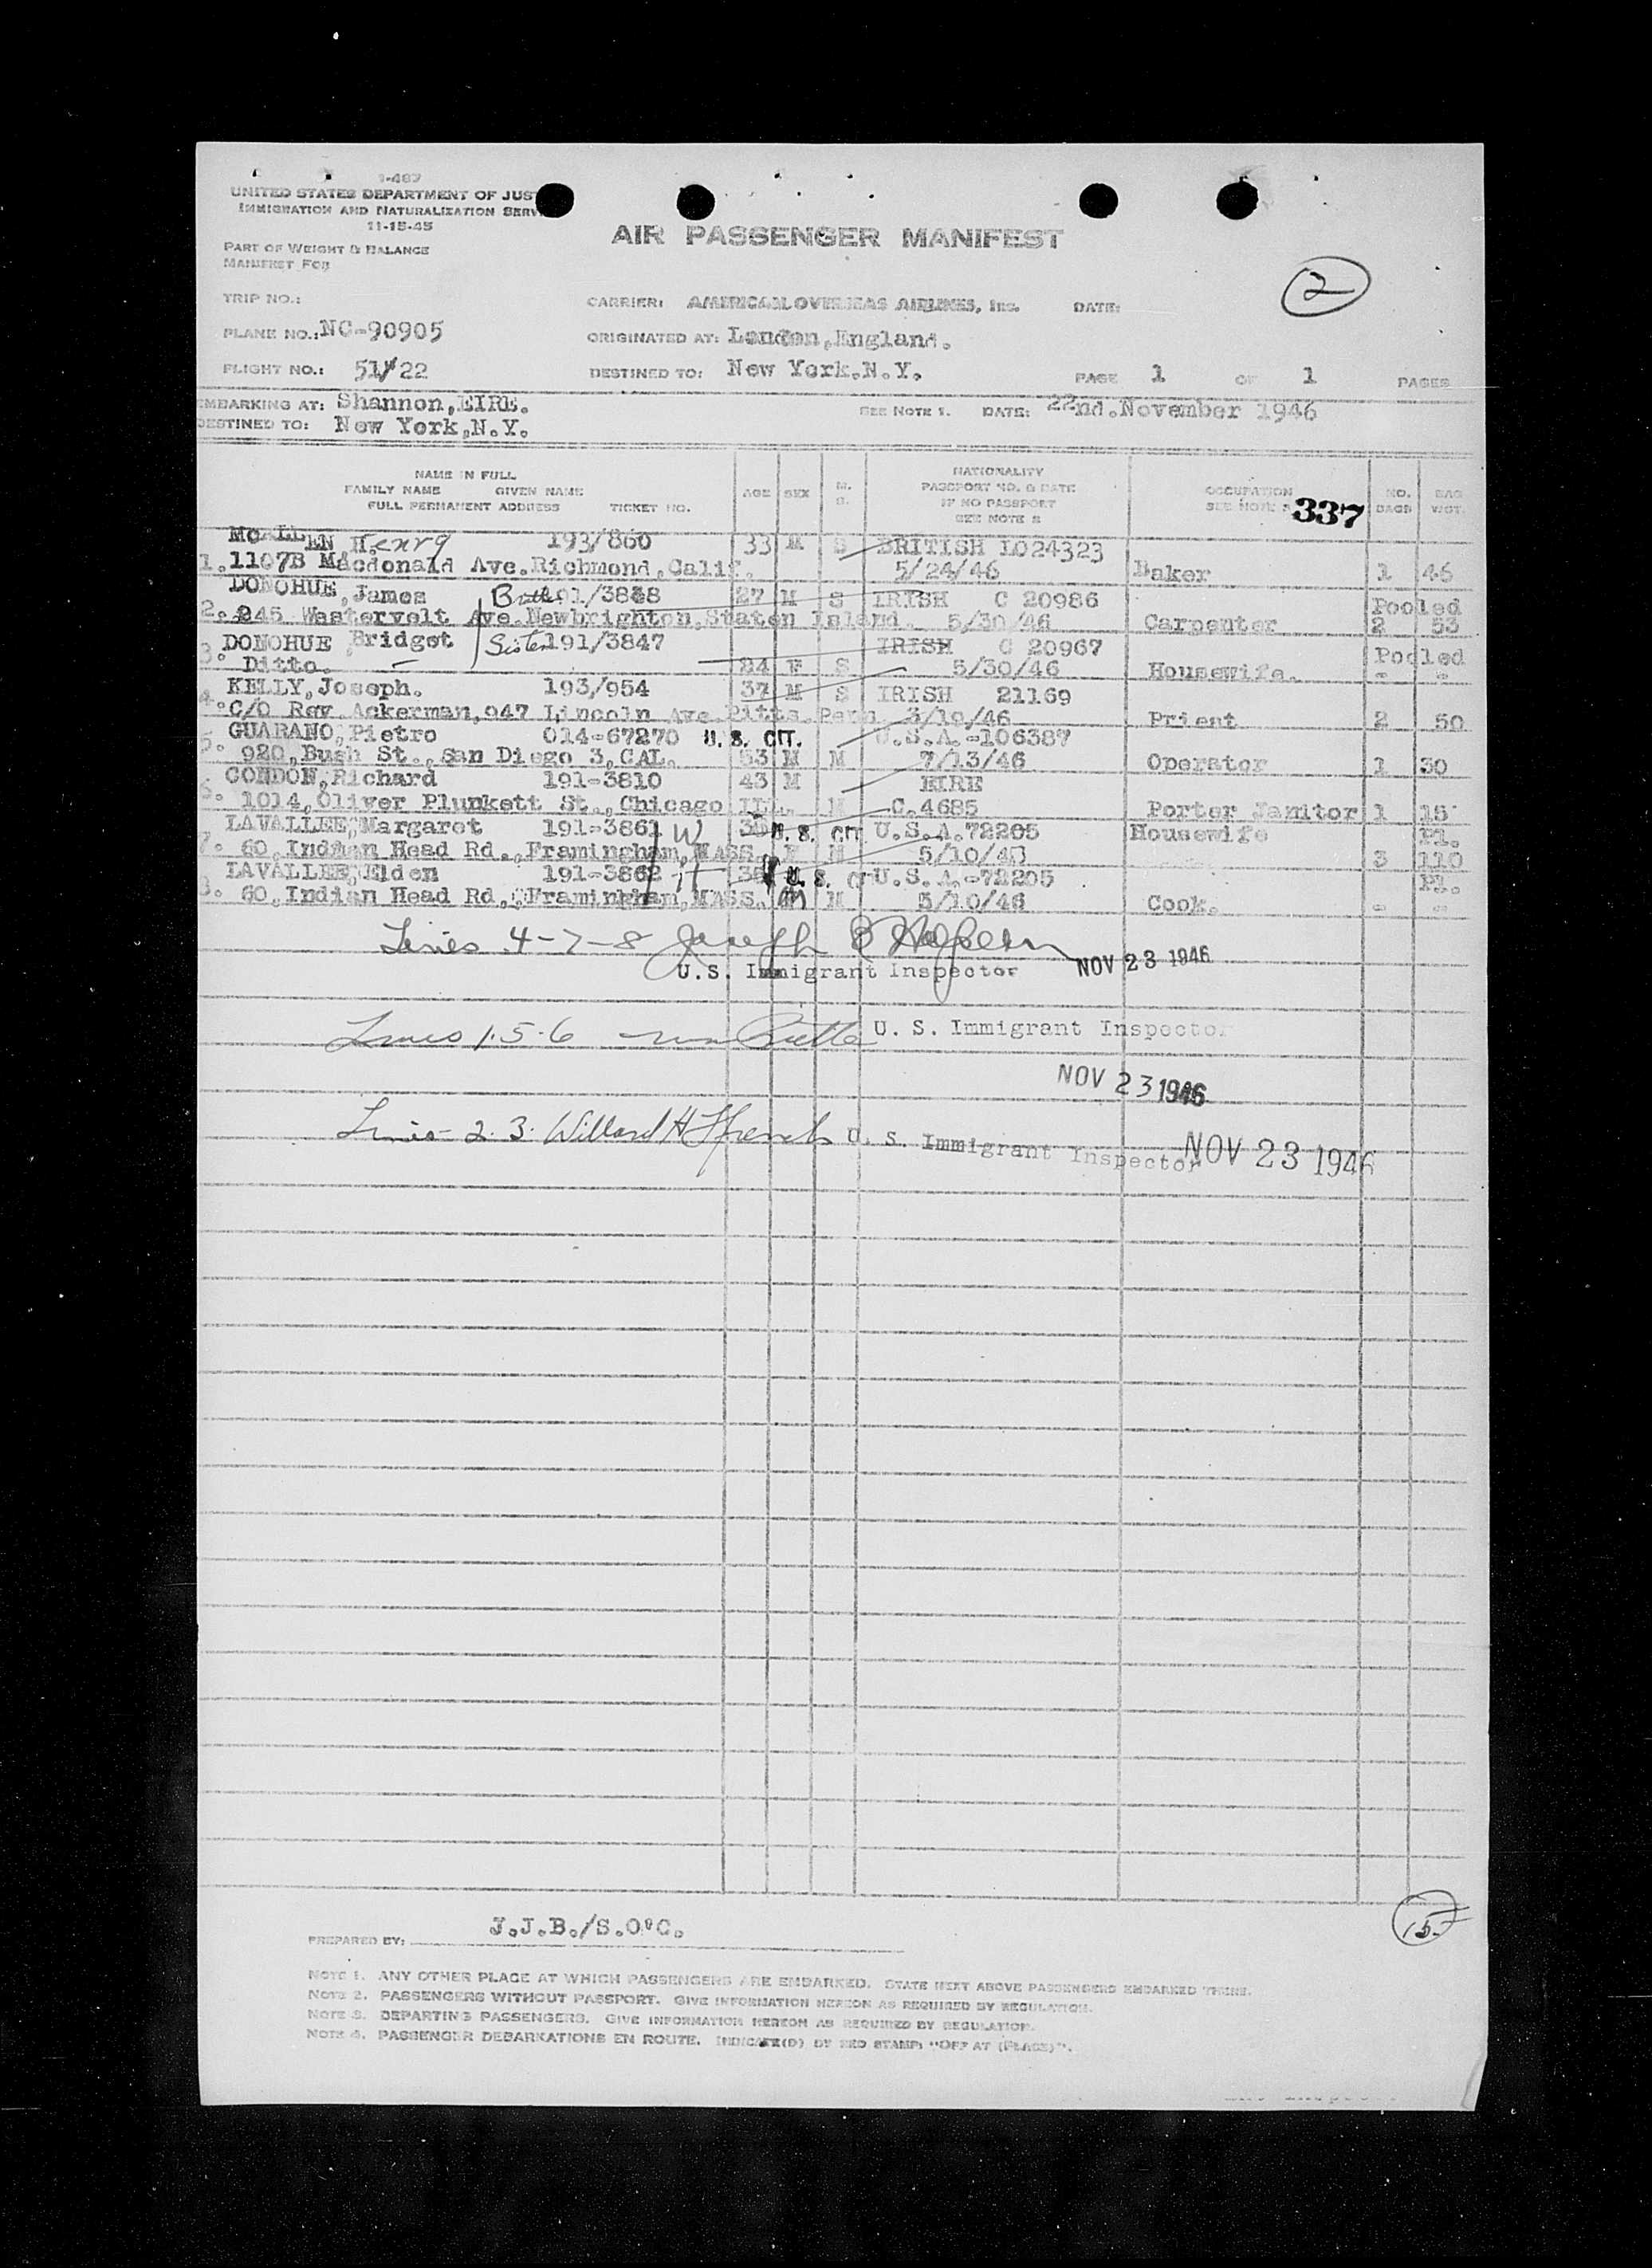 1-487
UNITED STATES DEPARTMENT OF JUST
IMMIGRATION AND NATURALIZATION SERV
11-15-45
PART OF WEIGHT & BALANCE
MANIFEST FOR
AIR PASSENGER MANIFEST
2
TRIP NO.: CARRIER: AMERICAN OVERSEAS AIRLINES, INC. DATE:
PLANE NO.: NC-90905 ORIGINATED AT: London,England.
FLIGHT NO.: 51/22 DESTINED TO: New York.N.Y. PAGE 1 OF 1 PAGES
EMBARKING AT: Shannon,EIRE. SEE NOTE 1. DATE: 22nd.November 1946
DESTINED TO: New York,N.Y.
NAME IN FULL
FAMILY NAME GIVEN NAME
FULL PERMANENT ADDRESS TICKET NO. AGE SEX M. S. NATIONALITY PASSPORT NO. & DATE IF NO PASSPORT SEE NOTE 2 OCCUPATION SEE NOTE 337 NO. BAGS BAG WGT.
McALLEN Henry 193/860 33 M S BRITISH LO24323
1. 1107B Macdonald Ave.Richmond,Calif. 5/24/46 Baker 1 46
DONOHUE,James 27 M S IRISH C 20986 Pooled
2. 245 Westervelt Ave.Newbrighton,Staten Island. 5/30/46 Carpenter 2 53
DONOHUE Bridget Sister 191/3847 IRISH C 20967 Pooled
3. Ditto. — 24 F S 5/30/46 Housewife. - -
KELLY,Joseph. 193/954 37 M S IRISH 21169
4. C/O Rev Ackerman,947 Lincoln Ave.Pitts.Penn 3/19/46 Priest 2 50
GUARANO,Pietro 014-67270 U. S. CIT. U.S.A.-106387
5. 920,Bush St.,San Diego 3,CAL. 53 M M 7/13/46 Operator 1 30
CONDON,Richard 191-3810 43 M EIRE
6. 1014,Oliver Plunkett St.,Chicago ILL. M C.4685 Porter Janitor 1 15
LAVALLEE,Margaret 191-3861 W 35 U. S. CIT U.S.A.72205 Housewife Pl.
7. 60,Indian Head Rd.,Framingham,MASS. F M 5/10/46 3 110
LAVALLEE,Elden 191-3862 H 36 U. S. CIT U.S.A.-72205 Pl.
8. 60,Indian Head Rd.,Framingham,MASS. M M 5/10/46 Cook. - -
Lines 4-7-8 Joseph
U.S. Immigrant Inspector NOV 23 1946
Lines 1.5.6 U. S. Immigrant Inspector
NOV 23 1946
Lines 2.3. Willard H U. S. Immigrant Inspector NOV 23 1946
15
PREPARED BY: J.J.B./S.O'C.
NOTE 1. ANY OTHER PLACE AT WHICH PASSENGERS ARE EMBARKED. STATE NEXT ABOVE PASSENGERS EMBARKED THERE.
NOTE 2. PASSENGERS WITHOUT PASSPORT. GIVE INFORMATION HEREON AS REQUIRED BY REGULATION.
NOTE 3. DEPARTING PASSENGERS. GIVE INFORMATION HEREON AS REQUIRED BY REGULATION.
NOTE 4. PASSENGER DEBARKATIONS EN ROUTE. INDICATE(D) BY RED STAMP: "OFF AT (PLACE)".